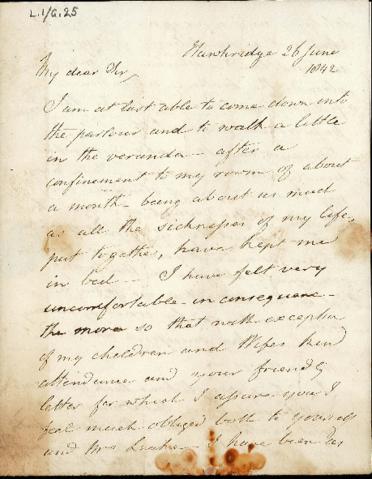 L.1/G.25
Hawkridge 26 June
1842
My dear Sir,
I am at last able to come down into
the parlour and to walk a little
in the veranda — after a
confinement to my room of about
a month — being about as much
as all the sicknesses of my life,
put together, have kept me
in bed — I have felt very
uncomfortable in consequence —
the more so that with exception
of my children and Wifes kind
attendance and your friendly
letter for which I assure you I
feel much obliged both to yourself
and Mrs I have been as